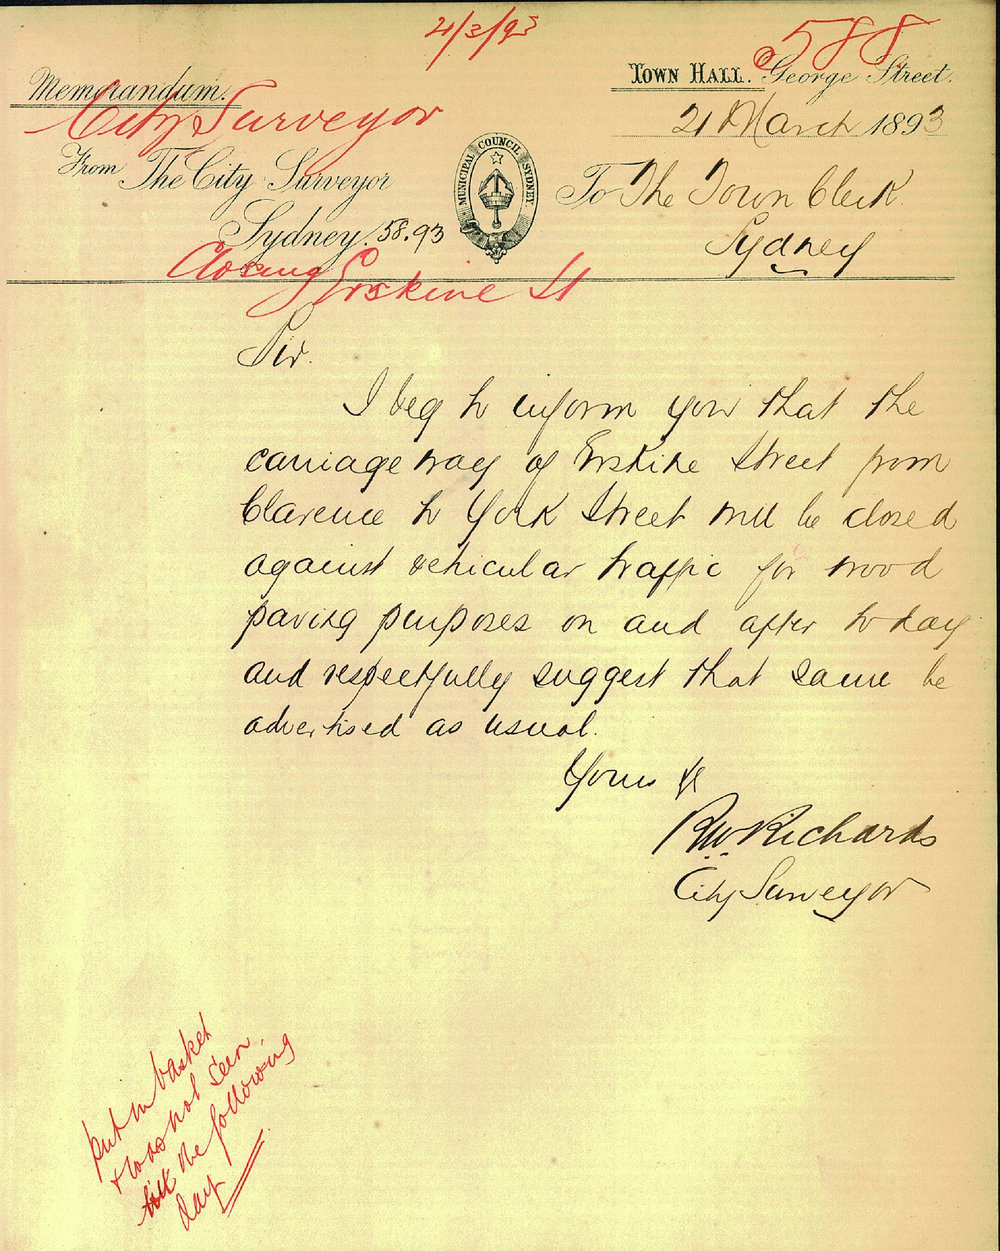 21/3/93
588
Memorandum.
Town Hall. George Street.
City Surveyor
21 March 1893
From The City Surveyor
MUNICIPAL COUNCIL SYDNEY
To The Town Clerk.
Sydney. 58.93
Sydney
Closing Erskine St
Sir.
I beg to inform you that the
carriage way of Erskine Street from
Clarence to York Street will be closed
against vehicular traffic for wood
paving purposes on and after to day
and respectfully suggest that same be
advertised as usual.
Yours &c
RW Richards
City Surveyor
put in basket
& was not seen
till the following
day